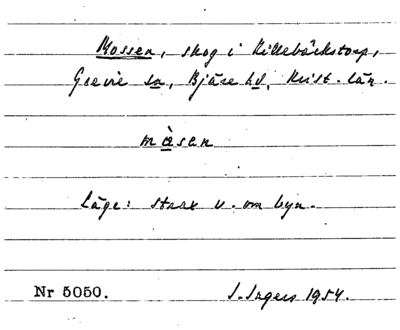 Mossen, skog i Killebäckstorp,
Grevie sn, Bjäre hd, Krist. län.
màsen
Läge: strax v. om byn.
Nr 5050. S. Ingers 1954.